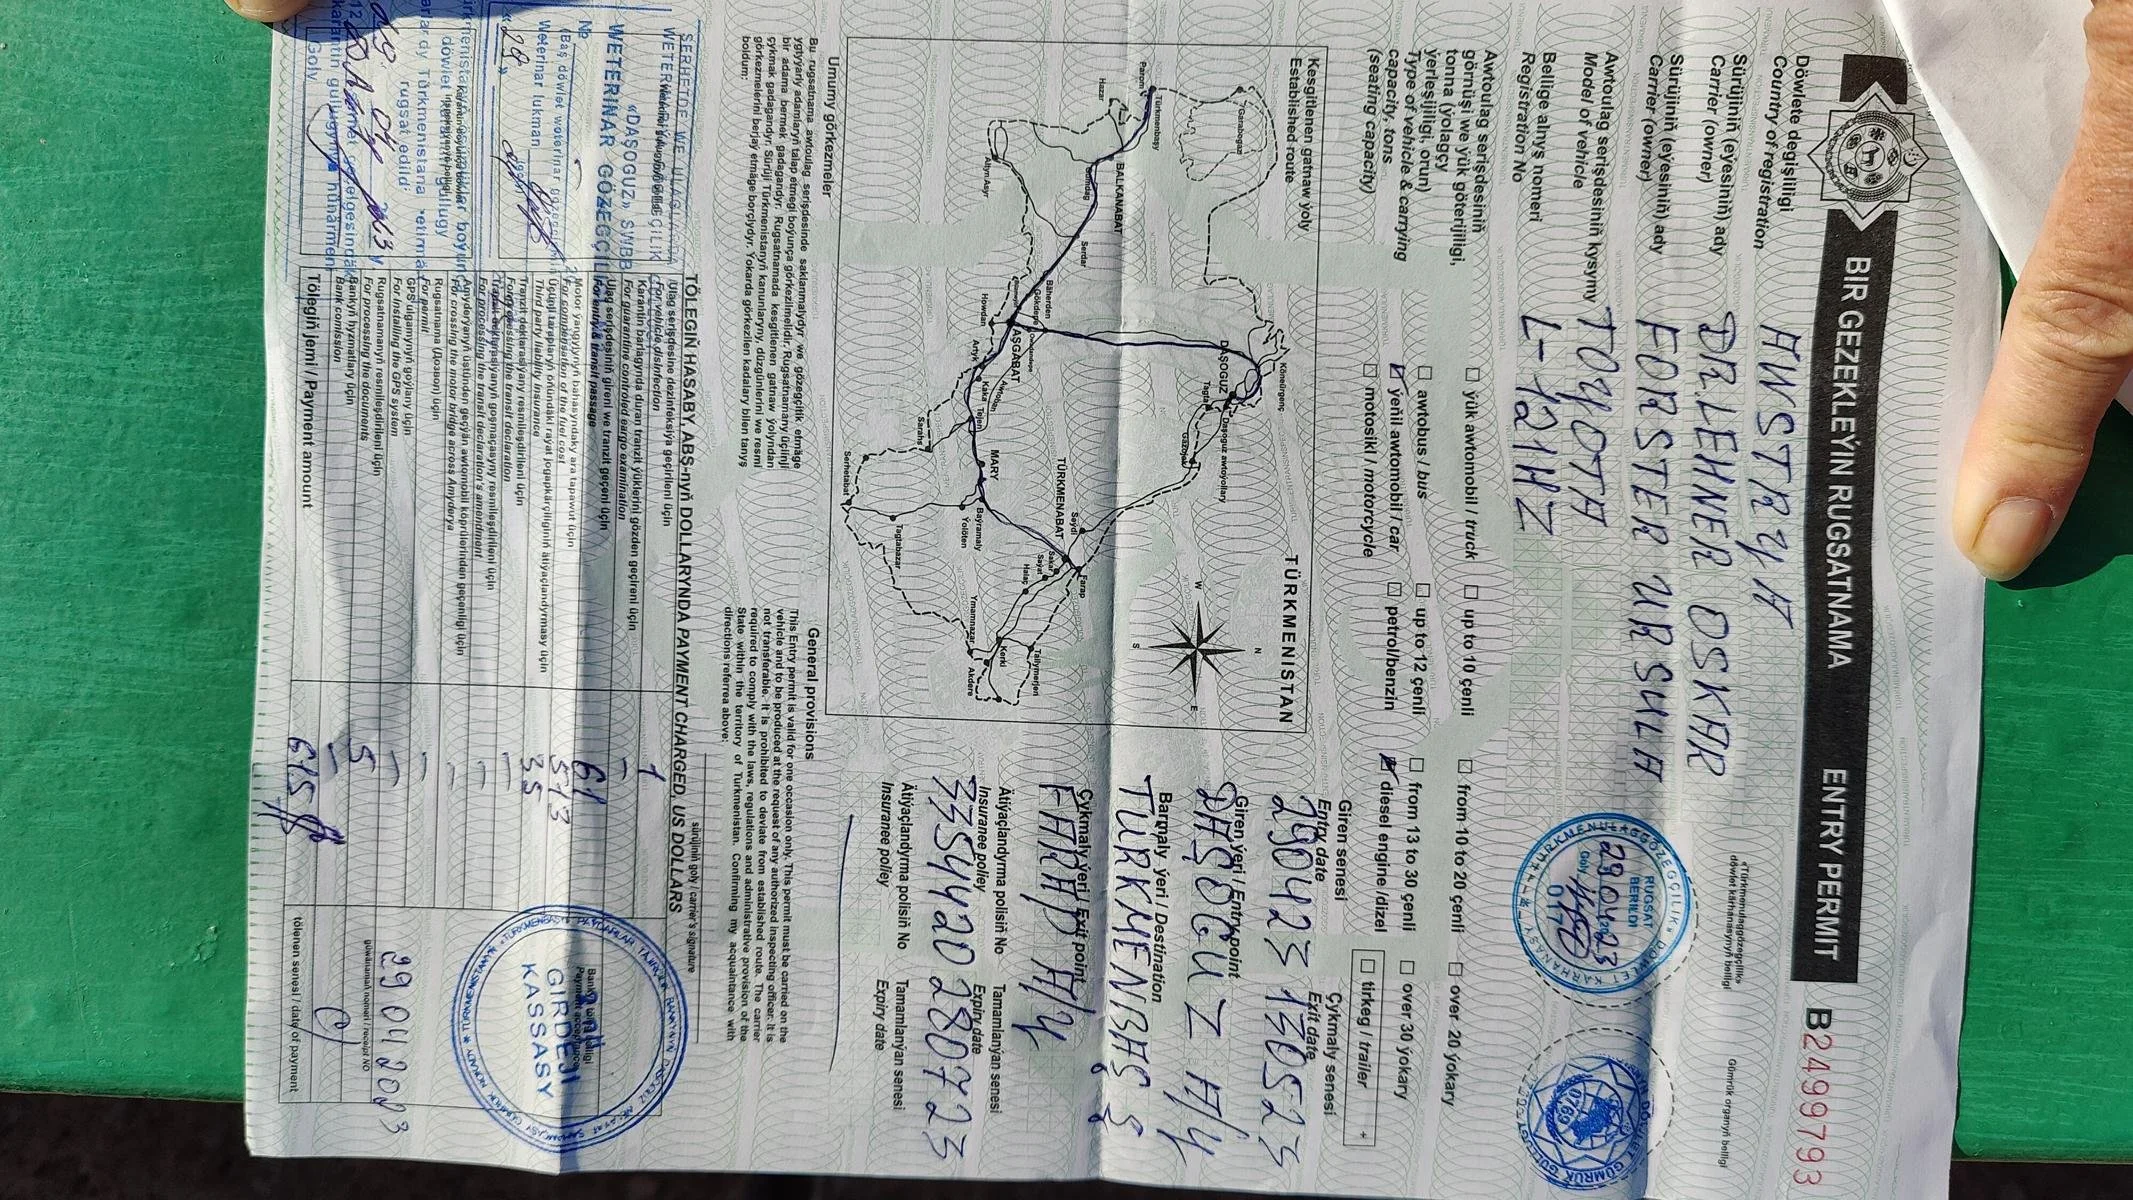 BIR GEZEKLEÝIN RUGSATNAMA ENTRY PERMIT B2499793
Döwlete degişliligi
Country of registration
AWSTRYA
«Türkmenulaggözegçilik»
döwlet kärhanasynyň belligi
Gümrük organyň belligi
Sürüjiniň (eýesiniň) ady
Carrier (owner)
DR.LEHNER OSKAR
Sürüjiniň (eýesiniň) ady
Carrier (owner)
FORSTER URSULA
Awtoulag serişdesiniň kysymy
Model of vehicle
TOYOTA
Bellige alnyş nomeri
Registration No
L-121HZ
RUGSAT
BERILDI
290423
017
Awtoulag serişdesiniň
görnüşi we ýük göterijiligi,
tonna (ýolagçy
ýerleşijiligi, orun)
Type of vehicle & carrying
capacity, tons
(seating capacity)
ýük awtomobil / truck
up to 10 çenli
from 10 to 20 çenli
over 20 ýokary
awtobus / bus
up to 12 çenli
from 13 to 30 çenli
over 30 ýokary
ýeňil awtomobil / car
petrol/benzin
diesel engine /dizel
tirkeg / trailer
motosikl / motorcycle
Kesgitlenen gatnaw ýoly
Established route
TÜRKMENISTAN
Garabogaz
Türkmenbaşy
Parom
Hazar
BALKANABAT
Gumdag
Serdar
Altyn Asyr
Bäherden
Gökdepe
Howdan
AŞGABAT
Artyk
Kaka
Tejen
Sarahs
Serhetabat
MARY
Baýramaly
Ýolöten
Tagtabazar
TÜRKMENABAT
Seýdi
Farap
Sakar
Saýat
Halaç
Kerki
Ymamnazar
Akdere
Tallymerjen
DAŞOGUZ
Köneürgenç
Tagta
Gazojak
Daşoguz awtoýollary
N
W
E
S
Giren senesi
Entry date
Çykmaly senesi
Exit date
290423 130523
Giren ýeri / Entry point
DAŞOGUZ A/Y
Barmaly ýeri / Destination
TURKMENBAS
Çykmaly ýeri / Exit point
FARAP A/Y
Ätiýaçlandyrma polisiň No
Insuranee policy
Tamamlanýan senesi
Expiry date
3354420 280723
Ätiýaçlandyrma polisiň No
Insuranee policy
Tamamlanýan senesi
Expiry date
Umumy görkezmeler
Bu rugsatnama awtoulag serişdesinde saklanmalydyr we gözegçilik etmäge
ygtyýarly adamlaryň talap etmegi boýunça görkezilmelidir. Rugsatnamany üçünji
bir adama bermek gadagandyr. Rugsatnamada kesgitlenen gatnaw ýolyndan
çykmak gadagandyr. Sürüji Türkmenistanyň kanunlaryny, düzgünlerini we resmi
görkezmelerini berjaý etmäge borçlydyr. Ýokarda görkezilen kadalary bilen tanyş
boldum:
General provisions
This Entry permit is valid for one occasion only. This permit must be carried on the
vehicle and to be produced at the request of any authorized inspecting officer. It is
not transferable. It is prohibited to deviate from established route. The carrier
required to comply with the laws, regulations and administrative provision of the
State within the territory of Turkmenistan. Confirming my acquaintance with
directions referrea above:
sürüjiniň goly / carrier's signature
TÖLEGIŇ HASABY, ABŞ-nyň DOLLARYNDA PAYMENT CHARGED, US DOLLARS
Ulag serişdesine dezinfeksiýa geçirileni üçin
For vehicle disinfection
1
Karantin barlagynda duran tranzit ýüklerini gözden geçireni üçin
For guarantine controled eargo examination
Ulag serişdesiniň gireni we tranzit geçeni üçin
For entry & transit passage
61
Motor ýangyjynyň bahasyndaky ara tapawut üçin
For compensation of the fuel cost
513
Üçünji tarapyň öňündäki raýat jogapkärçiliginiň ätiýaçlandyrmasy üçin
Third party liability insurance
35
Tranzit deklarasiýany resmileşdirileni üçin
For processing the transit declaration
Tranzit deklarasiýanyň goşmaçasyny resmileşdirileni üçin
For processing the transit declaration's amendment
Amyderýanyň üstünden geçýän awtomobil köprülerinden geçenligi üçin
For crossing the motor bridge across Amyderya
Rugsatnama (Дозвол) üçin
For permit
GPS ulgamynyň goýlany üçin
For installing the GPS system
Rugsatnamanyň resmileşdirileni üçin
For processing the documents
5
Bankyň hyzmatlary üçin
Bank comission
Tölegiň jemi / Payment amount
615 $
GIRDEJI
KASSASY
29042023
güwänamaň nomeri / receipt NO
tölenen senesi / date of payment
SERHETDE WE ULAGDA
WETERINARÝA GÖZEGÇILIK
«DAŞOGUZ» SWBB
WETERINAR GÖZEGÇILI
№
(Baş döwlet weterinar gözegçi
Weterinar lukman
«29»
döwlet gullugy
rugsat edildi
Goly